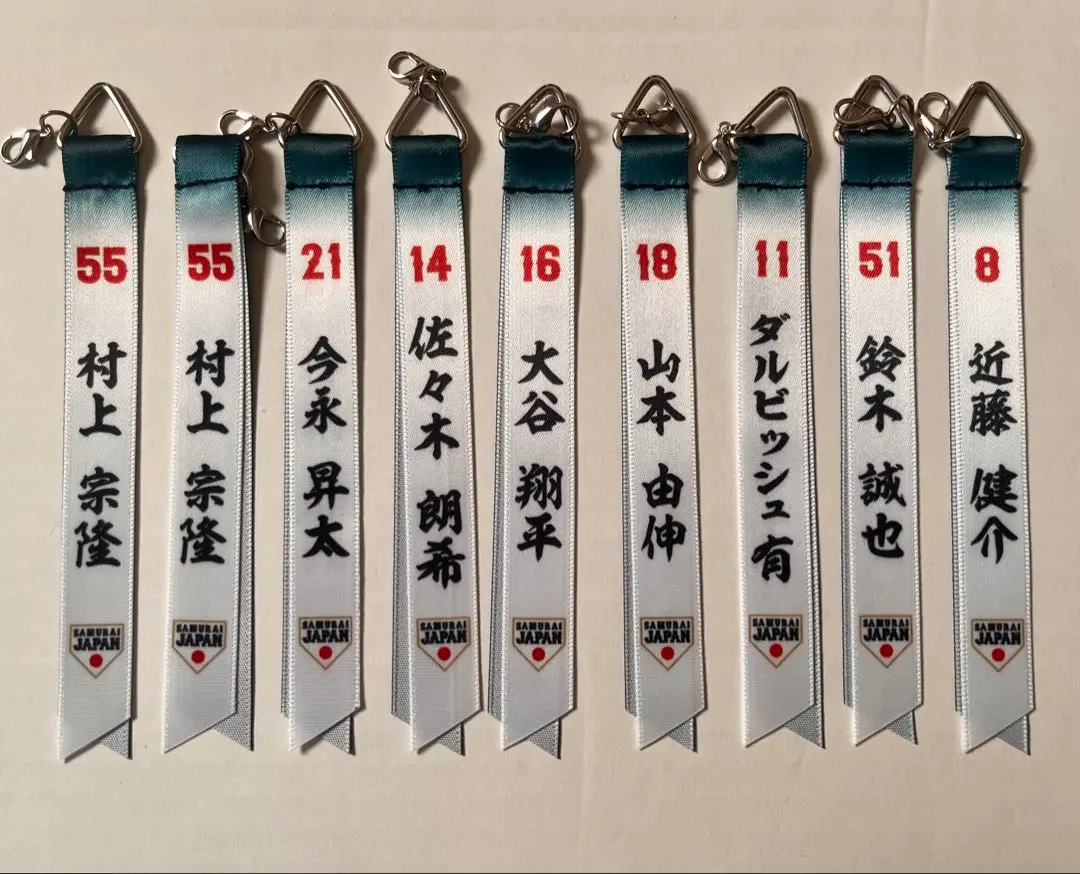 55
村上 宗隆
SAMURAI
JAPAN
55
村上 宗隆
SAMURAI
JAPAN
21
今永 昇太
SAMURAI
JAPAN
14
佐々木 朗希
SAMURAI
JAPAN
16
大谷 翔平
SAMURAI
JAPAN
18
山本 由伸
SAMURAI
JAPAN
11
ダルビッシュ 有
SAMURAI
JAPAN
51
鈴木 誠也
SAMURAI
JAPAN
8
近藤 健介
SAMURAI
JAPAN